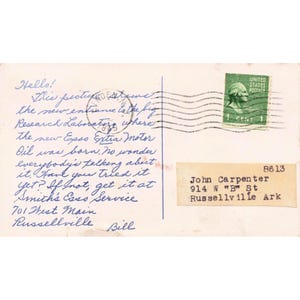 Hello!
This picture shows
the new entrance to the big
Research Laboratory where
the new Esso Extra Motor
Oil was born. No wonder
everybody's talking about
it. Have you tried it
yet? If not, get it at
Smith's Esso Service
701 West Main
Russellville
Bill
UNITED
STATES
POSTAGE
1 CENT 1
8613
John Carpenter
914 W "B" St
Russellville Ark